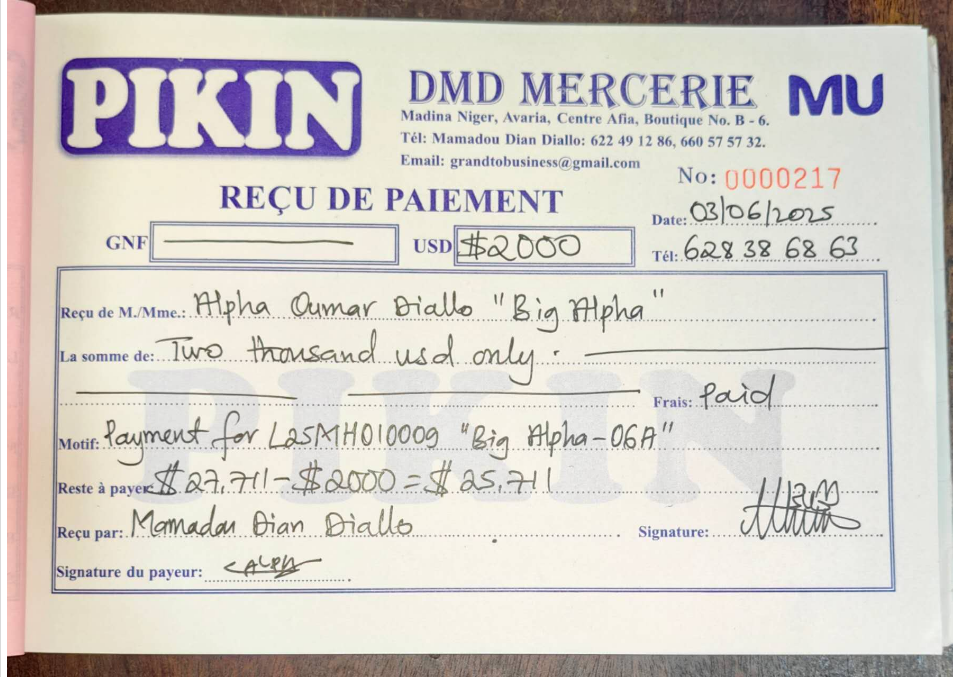 PIKIN
DMD MERCERIE
MU
Madina Niger, Avaria, Centre Afia, Boutique No. B - 6.
Tél: Mamadou Dian Diallo: 622 49 12 86, 660 57 57 32.
Email: grandtobusiness@gmail.com
No: 0000217
REÇU DE PAIEMENT
Date: 03/06/2025
GNF
USD $2000
Tél: 628 38 68 63
Reçu de M./Mme.: Alpha Oumar Diallo "Big Alpha"
La somme de: Two thousand usd only.
Frais: Paid
PIKIN
Motif: Payment for L25MH010009 "Big Alpha-06A"
Reste à payer: $27,711-$2000=$25,711
Reçu par: Mamadou Dian Diallo
Signature:
Signature du payeur: ALPHA